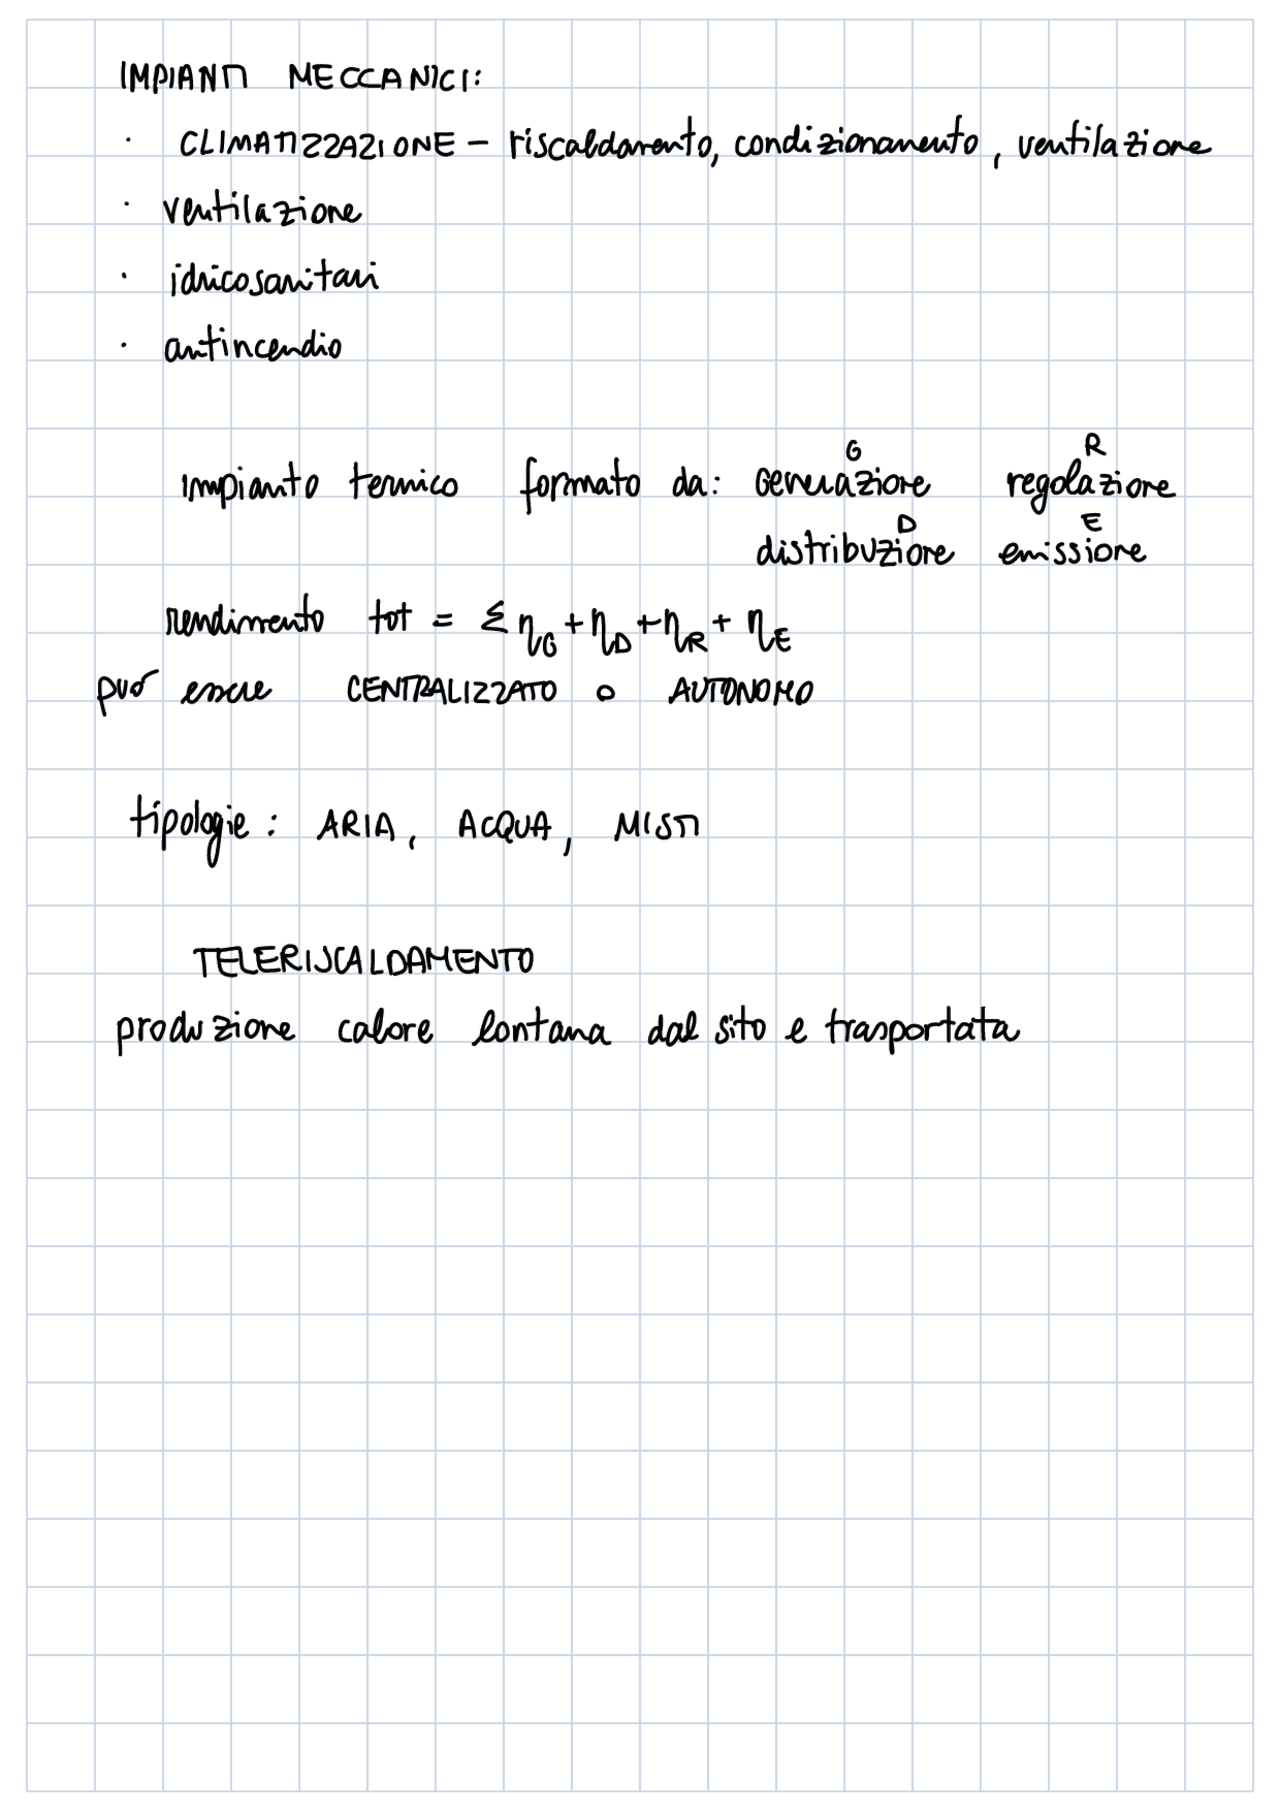 IMPIANTI MECCANICI:
· CLIMATIZZAZIONE - riscaldamento, condizionamento, ventilazione
· ventilazione
· idricosanitari
· antincendio
G R
impianto termico formato da: generazione regolazione
D E
distribuzione emissione
rendimento tot = Σ ηG + ηD + ηR + ηE
può essere CENTRALIZZATO o AUTONOMO
tipologie: ARIA, ACQUA, MISTI
TELERISCALDAMENTO
produzione calore lontana dal sito e trasportata